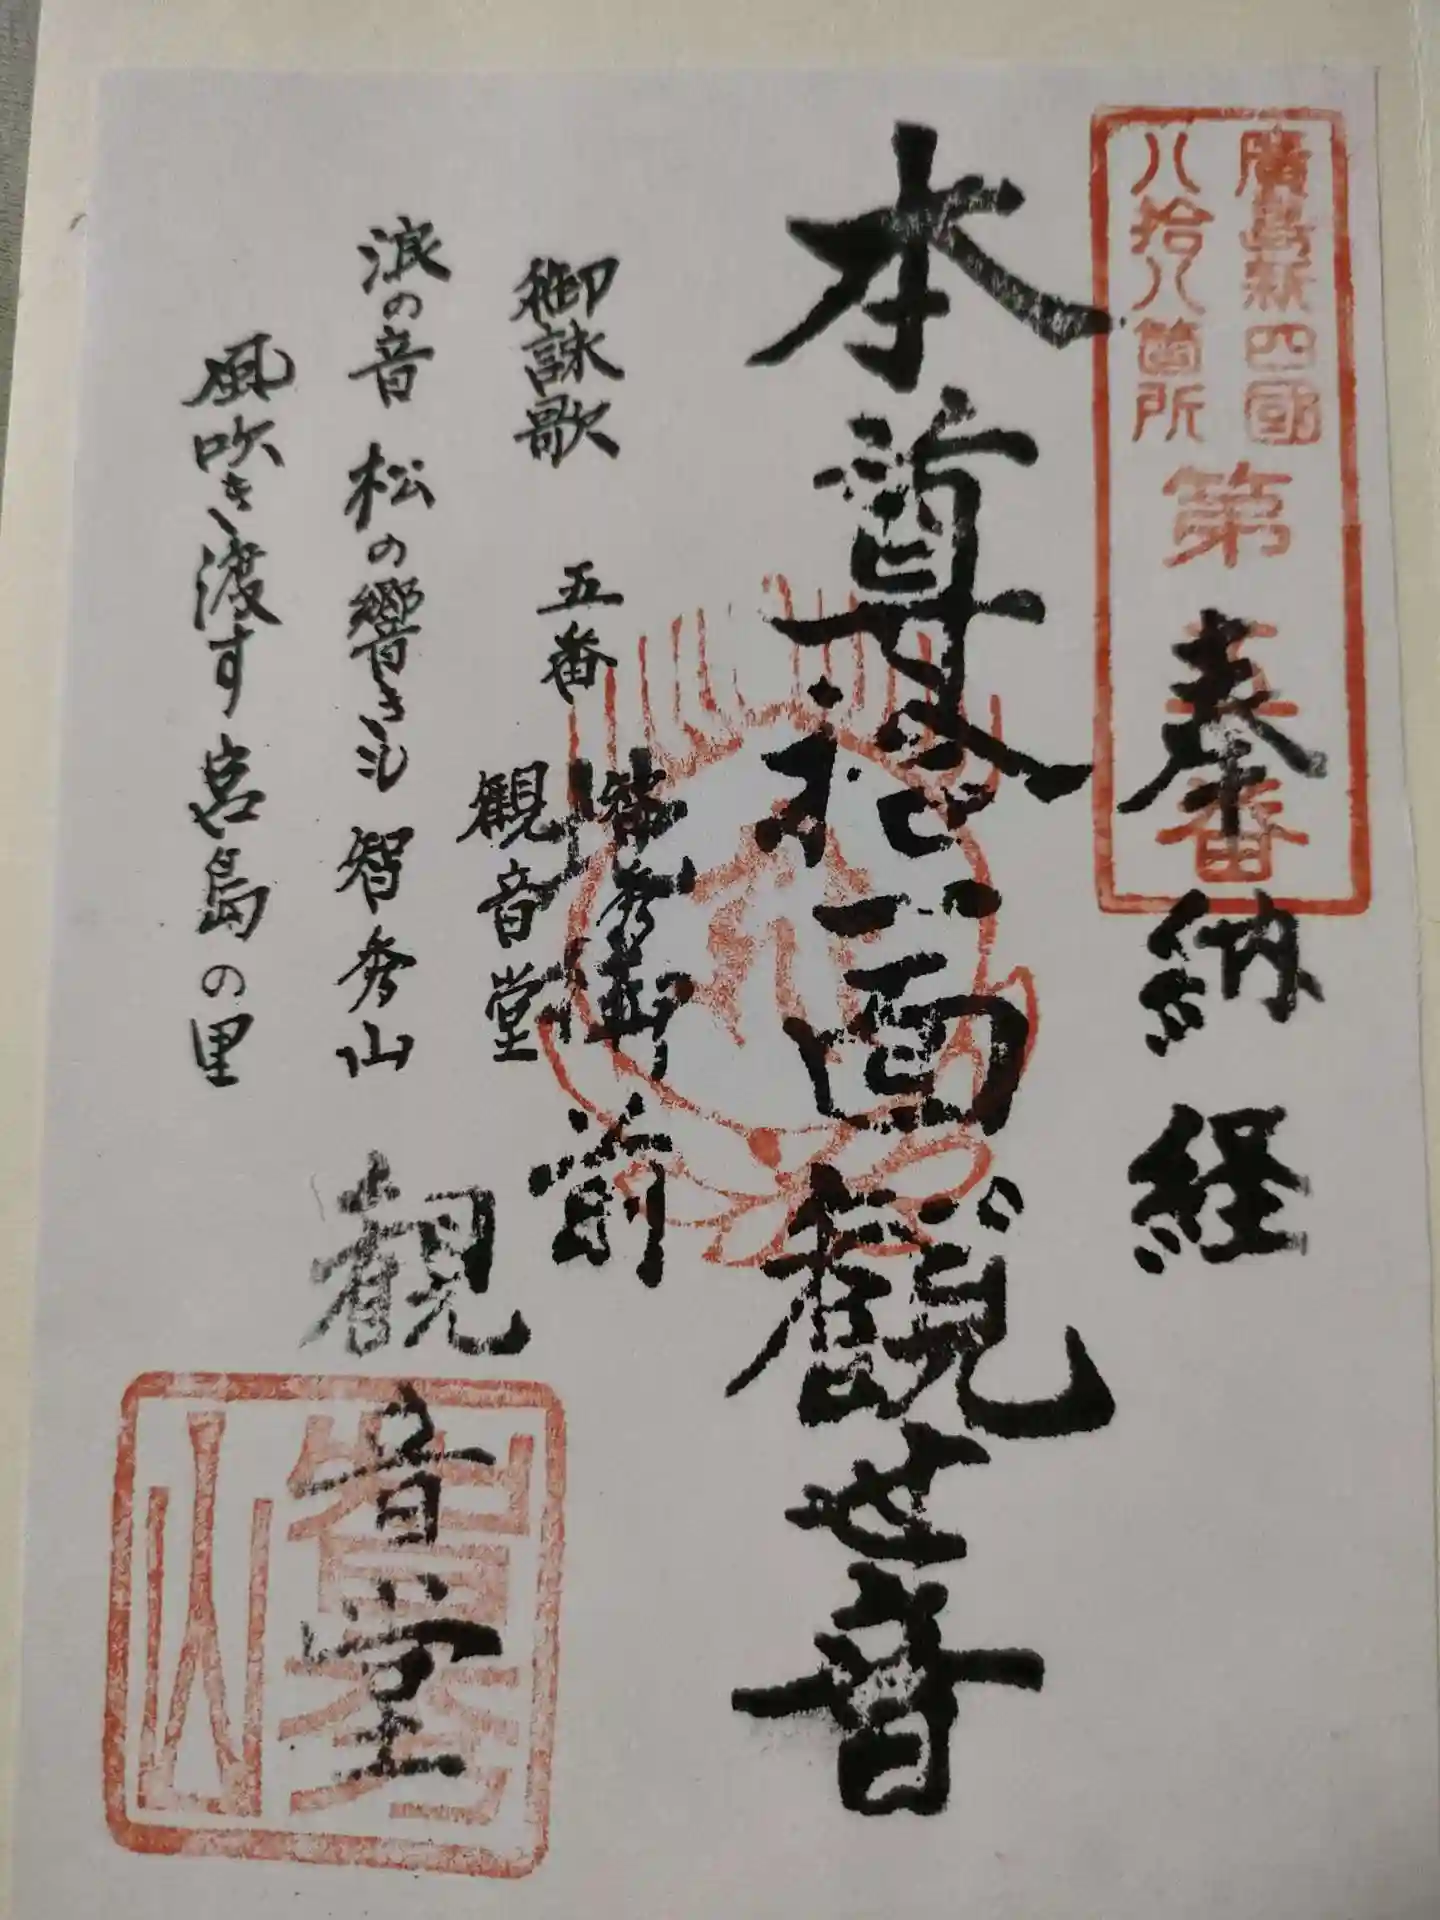 廣島新四國
八拾八箇所
第五番
奉納経
本尊拾一面観世音
御前
御詠歌 五番 智秀山
観音堂
浪の音 松の響きも 智秀山
風吹き渡す 宮島の里
観音堂
智秀
山